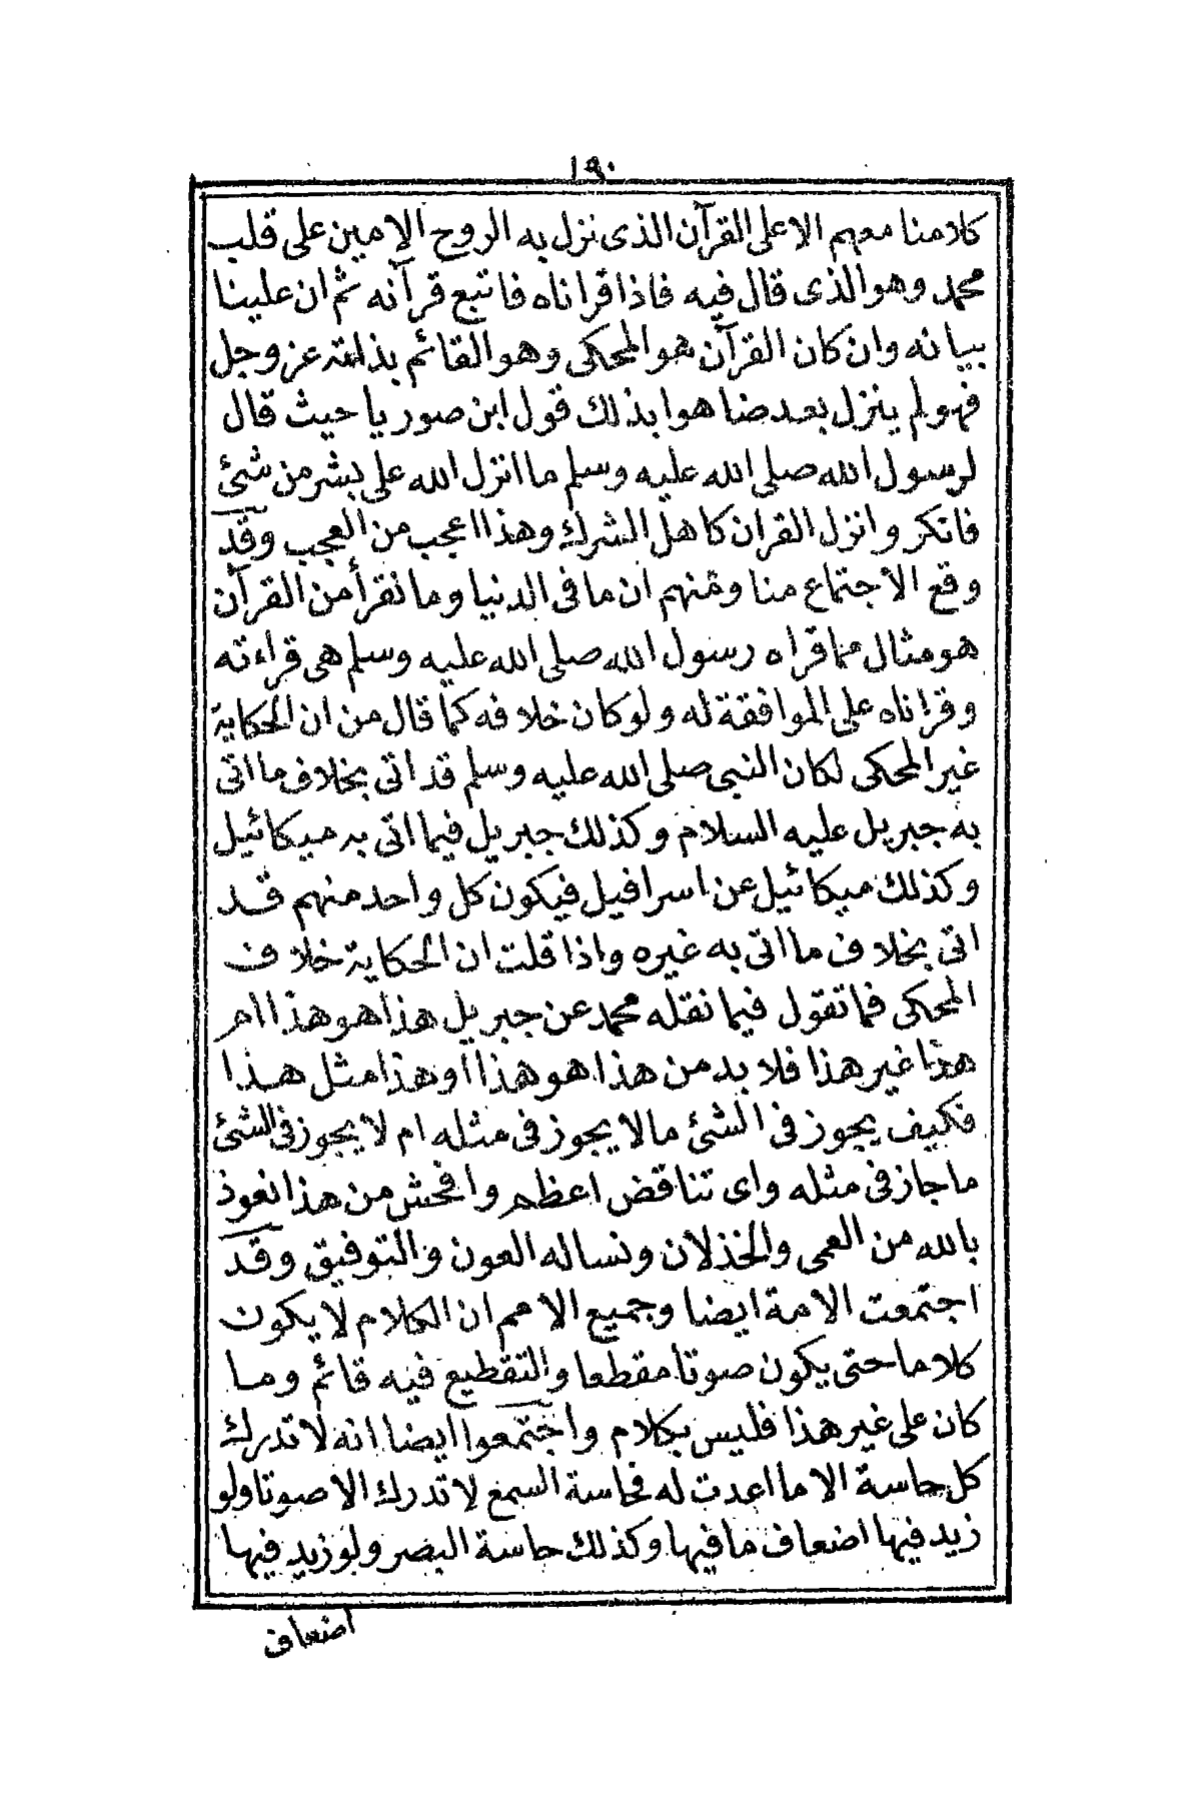 ١٩٠
كلامنا معهم الا على القرآن الذى نزل به الروح الامين على قلب
محمد وهو الذى قال فيه فاذا قراناه فاتبع قرآنه ثم ان علينا
بيانه وان كان القرآن هو المحكى وهو القائم بذاته عز وجل
فهو لم ينزل بعد ضاهوا بذلك قول ابن صوريا حيث قال
لرسول الله صلى الله عليه وسلم ما انزل الله على بشر من شئ
فانكروا نزل القران كاهل الشرك وهذا اعجب من العجب وقد
وقع الاجتماع منا ومنهم ان ما فى الدنيا وما نقرأ من القرآن
هو مثال مما قراه رسول الله صلى الله عليه وسلم هى قراءته
وقراناه على الموافقة له ولو كان خلافه كما قال من ان الحكاية
غير المحكى لكان النبى صلى الله عليه وسلم قد اتى بخلاف ما اتى
به جبريل عليه السلام وكذلك جبريل فيما اتى به ميكائيل
وكذلك ميكائيل عن اسرافيل فيكون كل واحد منهم قد
اتى بخلاف ما اتى به غيره واذا قلت ان الحكاية خلاف
المحكى فما تقول فيما نقله محمد عن جبريل هذا هو هذا ام
هذا غير هذا فلا بد من هذا هو هذا او هذا مثل هذا
فكيف يجوز فى الشئ ما لا يجوز فى مثله ام لا يجوز فى الشئ
ما جاز فى مثله واى تناقض اعظم وافحش من هذا نعوذ
بالله من العمى والخذلان ونساله العون والتوفيق وقد
اجتمعت الامة ايضا وجميع الامم ان الكلام لا يكون
كلاما حتى يكون صوتا مقطعا والتقطيع فيه قائم وما
كان على غير هذا فليس بكلام واجتمعوا ايضا انه لا تدرك
كل حاسة الا ما اعدت له فحاسة السمع لا تدرك الا صوتا ولو
زيد فيها اضعاف ما فيها وكذلك حاسة البصر ولو زيد فيها
اضعاف